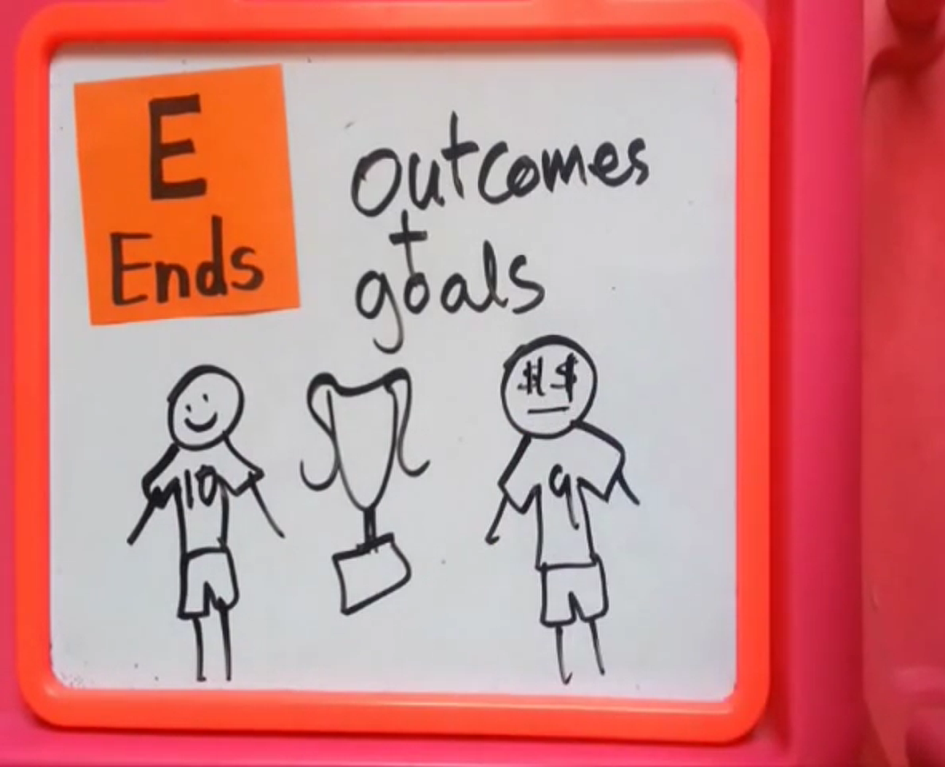 E
Ends
outcomes
+
goals
$ $
10
9